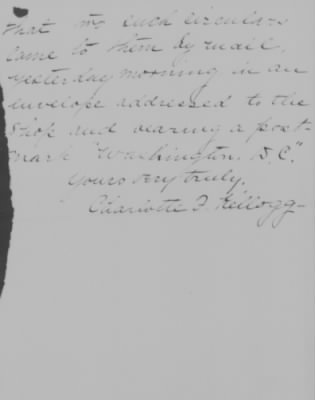 that my such circulars
came to them by mail,
yesterday morning in an
envelope addressed to the
Shop and bearing a post-
mark "Washington, D.C."
Yours very truly,
Charlotte F. Kellogg-